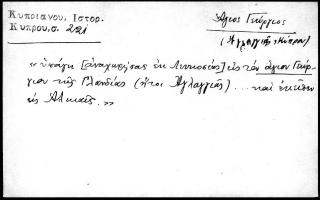 Κυπριανου, Ιστορ.
Κυπρου, σ. 221
Άγιος Γεώργιος
(Αγλαγγιᾶς, Κύπρου)
« ὑπάγει [ἀναχωρήσας ἐκ Λευκοσίας] εἰς τὸν ἅγιον Γεώρ-
γιον τῆς Γλανδίας (ἤτοι Ἀγλαγγιᾶς) ... καὶ ἐκεῖθεν
εἰς Ἁλικαῖς. »